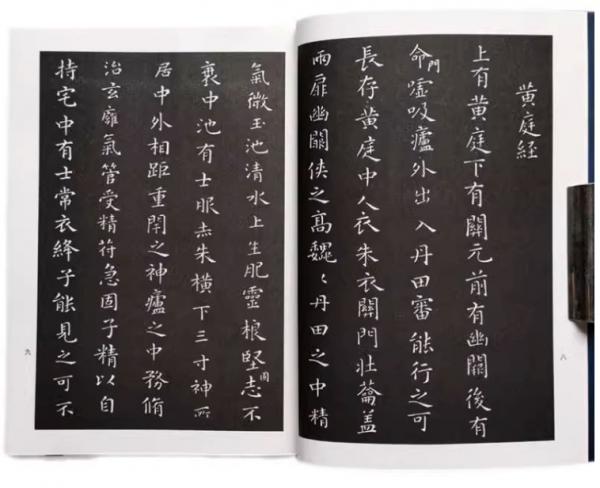 黄庭経
上有黄庭下有關元前有幽闕後有
命門嘘吸廬外出入丹田審能行之可
長存黄庭中人衣朱衣關門壯蘥盖
兩扉幽闕侠之髙魏〻丹田之中精
八
氣微玉池清水上生肥靈根堅固志不
衰中池有士服赤朱横下三寸神所
居中外相距重閇之神廬之中務脩
治玄廱氣管受精符急固子精以自
持宅中有士常衣絳子能見之可不
九